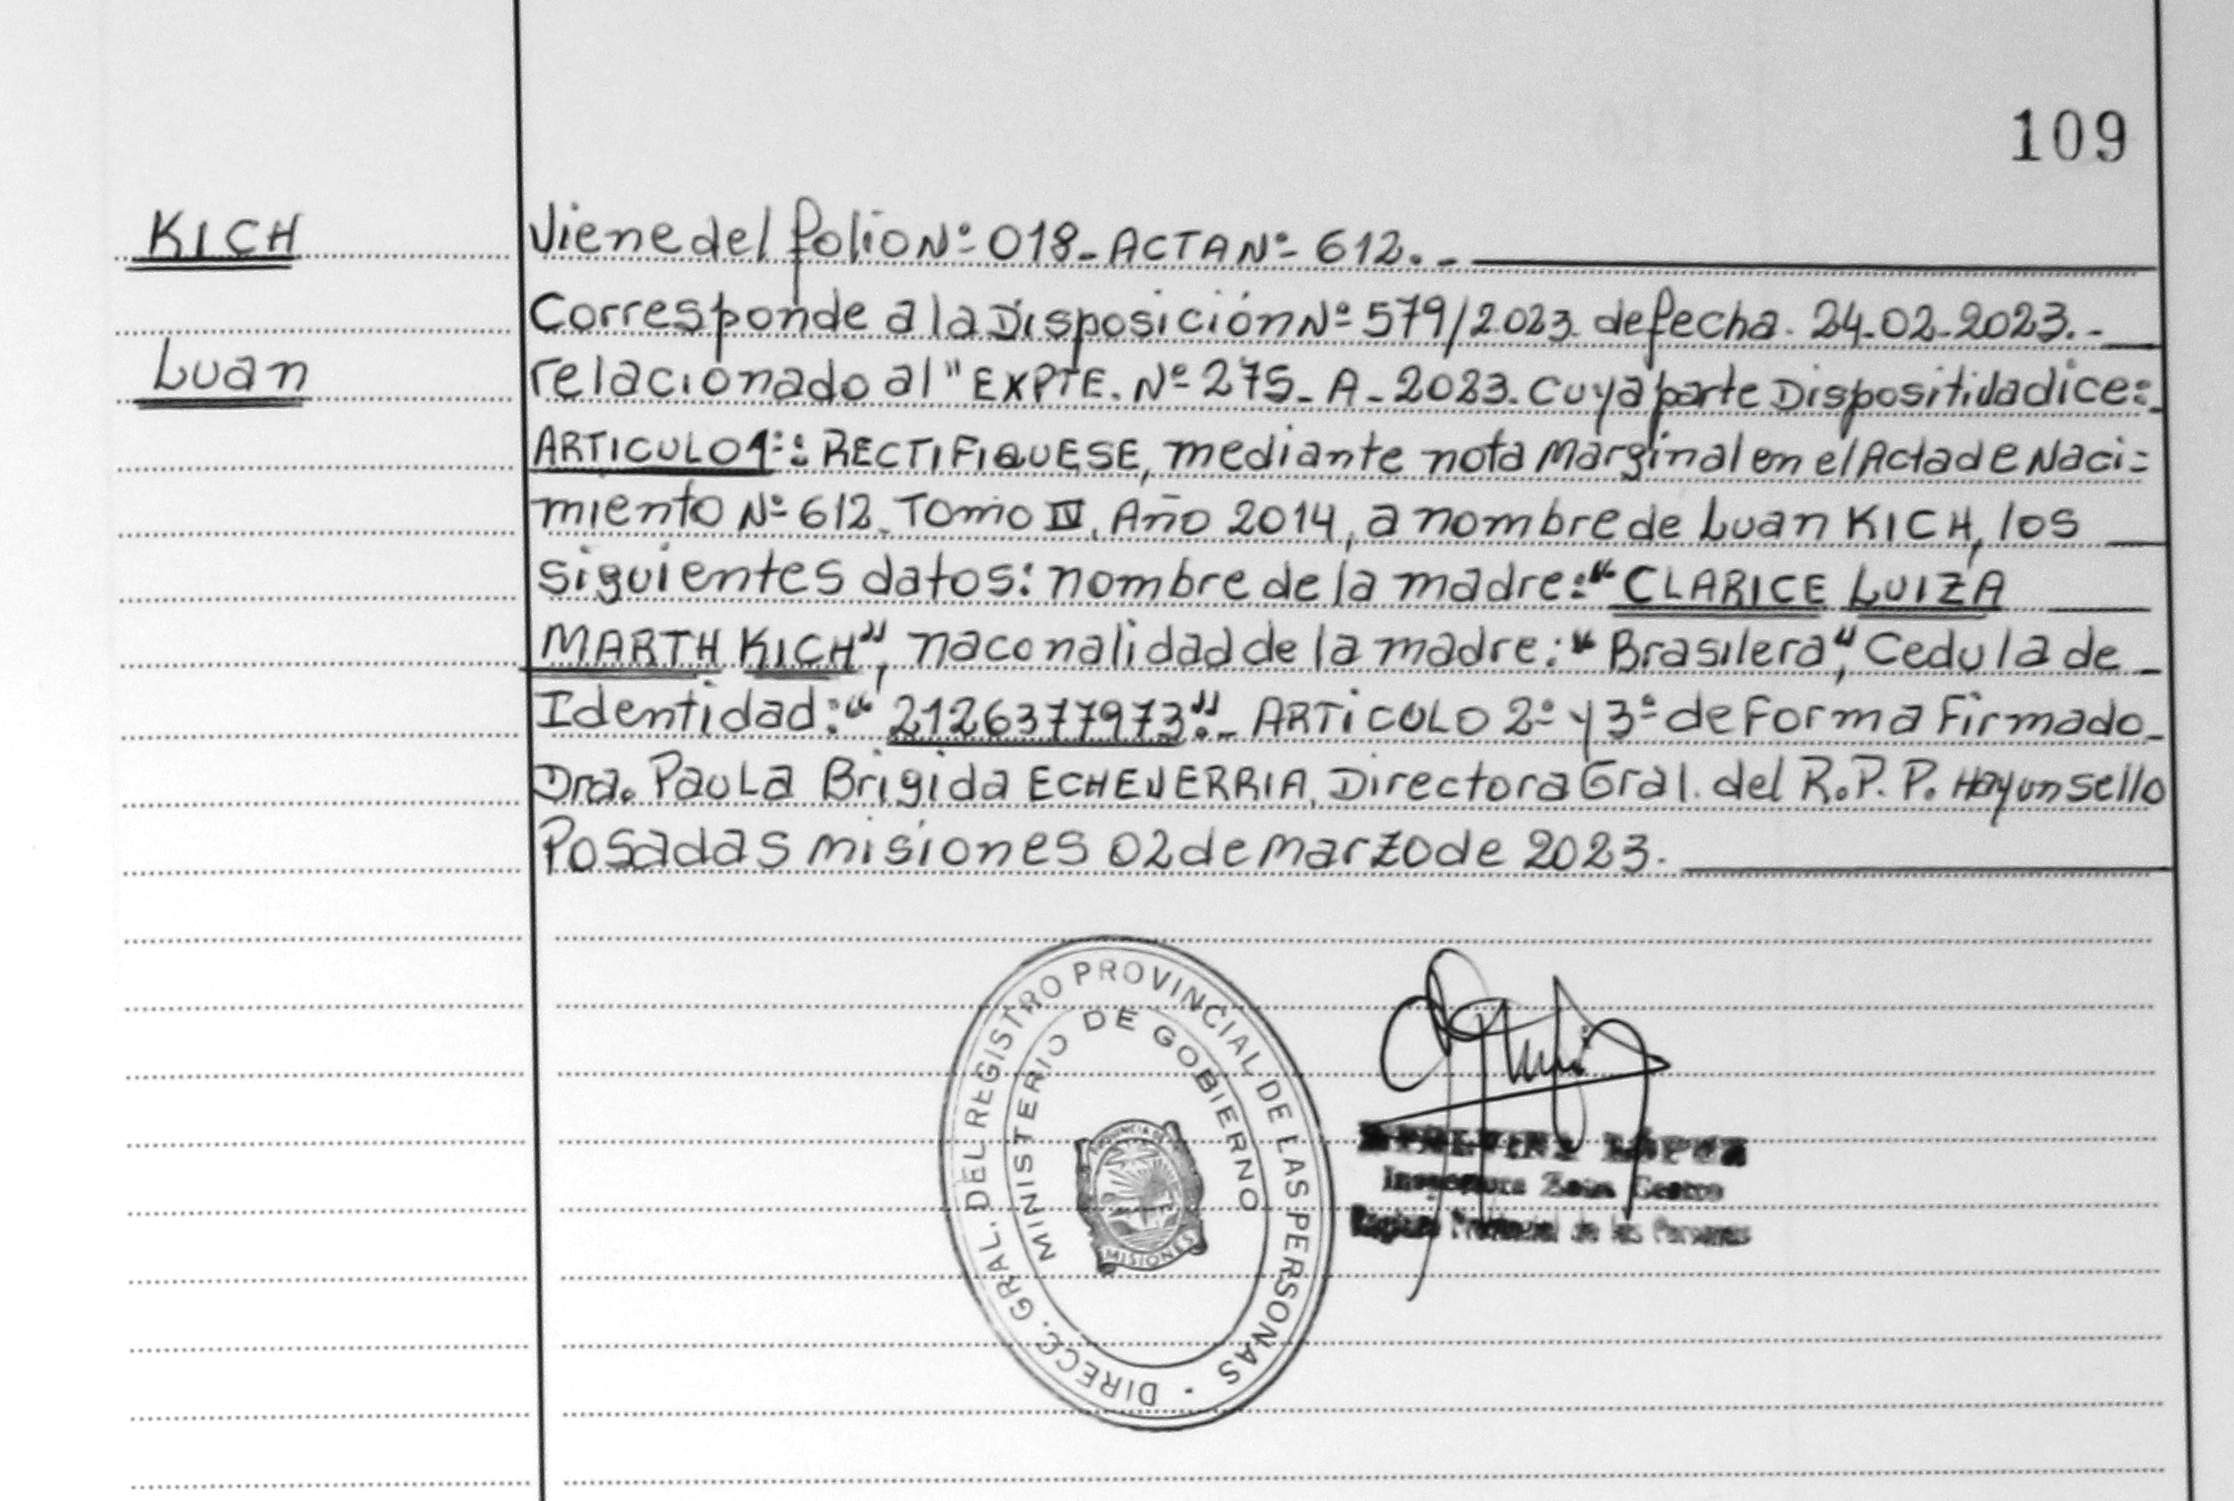 109
KICH
Viene del folio Nº 018_ ACTA Nº 612._
Corresponde a la Disposición Nº 579/2023. de fecha. 24-02-2023._
Luan
relacionado al "EXPTE. Nº 275_ A_ 2023. Cuya parte Dispositiva dice:
ARTICULO 1º: RECTIFIQUESE, mediante nota Marginal en el Acta de Naci=
miento Nº 612. Tomo IV, Año 2014, a nombre de Luan KICH, los
siguientes datos: nombre de la madre: "CLARICE LUIZA
MARTH KICH", naconalidad de la madre: "Brasilera", Cedula de
Identidad: "2126377973"._ ARTICULO 2º y 3º de Forma Firmado_
Dra. Paula Brigida ECHEVERRIA, Directora Gral. del R.P.P. Hay un sello
Posadas misiones 02 de marzo de 2023.
DIRECC. GRAL. DEL REGISTRO PROVINCIAL DE LAS PERSONAS -
MINISTERIO DE GOBIERNO
PROVINCIA DE
MISIONES
LÓPEZ
Inspectora Zona Centro
Registro Provincial de las Personas